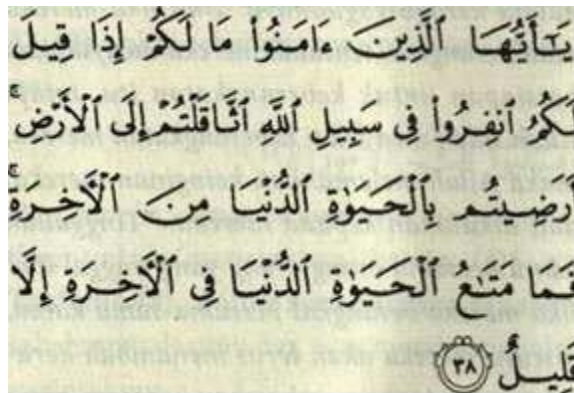 يَـٰٓأَيُّهَا ٱلَّذِينَ ءَامَنُوا۟ مَا لَكُمْ إِذَا قِيلَ
لَكُمُ ٱنفِرُوا۟ فِى سَبِيلِ ٱللَّهِ ٱثَّاقَلْتُمْ إِلَى ٱلْأَرْضِ ۚ
أَرَضِيتُم بِٱلْحَيَوٰةِ ٱلدُّنْيَا مِنَ ٱلْـَٔاخِرَةِ ۚ
فَمَا مَتَـٰعُ ٱلْحَيَوٰةِ ٱلدُّنْيَا فِى ٱلْـَٔاخِرَةِ إِلَّا
قَلِيلٌ ٣٨